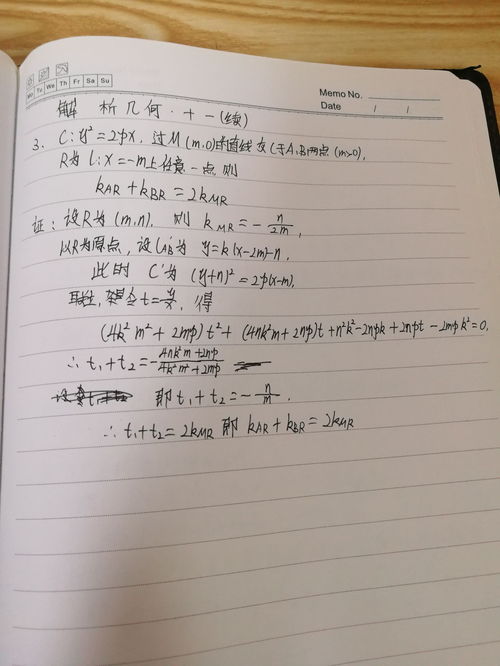 Mo Tu We Th Fr Sa Su
Memo No.
Date / /
解析几何·十一(续)
3. C: y²=2px, 过M(m,0)的直线交C于A,B两点(m>0),
R为l:x=-m上任意一点,则
k_AR+k_BR=2k_MR
证:设R为(m,n), 则 k_MR=-n/2m,
以R为原点,设l_AB为 y=k(x-2m)-n,
此时 C'为 (y+n)²=2p(x-m),
联立, 令t=y/x, 得
(4k²m²+2mp)t²+(4nk²m+2np)t+n²k²-2npk+2npt-2mpk²=0,
∴t₁+t₂=-(4nk²m+2np)/(4k²m²+2mp)
即t₁+t₂=-n/m.
∴t₁+t₂=2k_MR 即 k_AR+k_BR=2k_MR